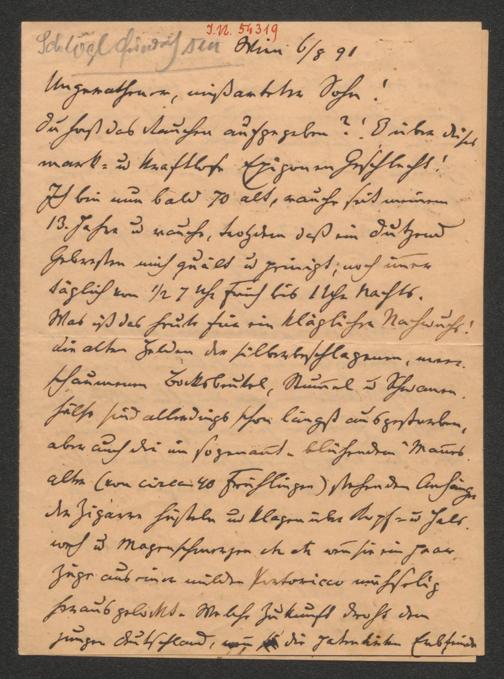 J.N. 54319
Schlögl Friedrich an Wien 6/8 91
Ungerathener, mißarteter Sohn!
Du hast das Rauchen aufgegeben?! O über dieses
mark- u kraftlose Epigonen Geschlecht!
Ich bin nun bald 70 alt, rauche seit meinem
13. Jahre u rauche, trotzdem daß ein Dutzend
Gebresten mich quält u peinigt, noch immer
täglich von 1/2 7 Uhr Früh bis 1 Uhr Nachts.
Was ist das heute für ein kläglicher Nachwuchs!
die alten Helden der silberbeschlagenen, meer-
schaumenen Bocksbeutel, Stummel u Schwanen-
hälse sind allerdings schon längst ausgestorben,
aber auch die im sogenannt- „blühenden" Mannes-
alter (von circa 40 Frühlingen) stehenden Anhänger
der Zigarre hüsteln und klagen über Kopf- u Hals-
weh u Magenschmerzen etc etc wenn sie ein paar
Züge aus einer milden Portoricco mühselig
herausgelockt. Welche Zukunft droht dem
jungen Deutschland, die